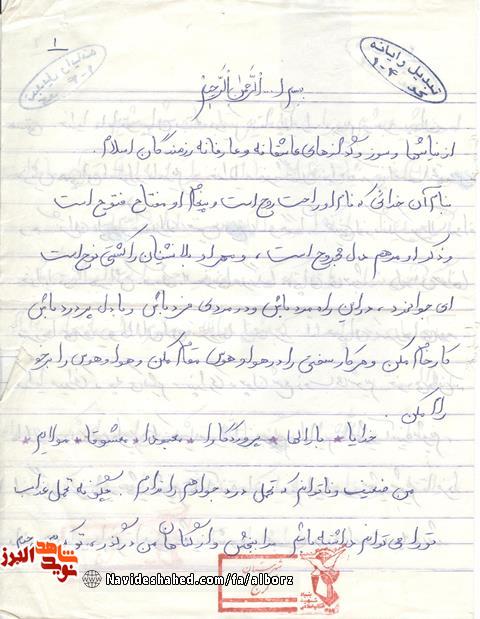 ۱
تبدیل رایانه
بسم الله الرحمن الرحیم
از نیایشها و سوز و گدازهای عاشقانه و عارفانه رزمندگان اسلام.
بنام آن خدائی که نام او راحت روح است و پیغام او مفتاح فتوح است
و ذکر او مرهم دل مجروح است ، و مهر او بلانشینان را کشتی نوح است
ای جوانمرد ، در این راه مرد باش و در مردی فرد باش و با دل پر درد باش
کار خام مکن و هر کار سختی را در هوا و هوس مقام مکن و هوا و هوس را بر خود
رام مکن .
خدایا * بارالها * پروردگارا * معبودا * معشوقا * مولایم *
من ضعیف و ناتوانم که تحمل درد جوادهم را ندارم . چگونه تحمل عذاب
تو را می توانم داشته باشم مرا ببخش و از گناهان من درگذر ، تو
نوید شاهد البرز
Navideshahed.com/fa/alborz